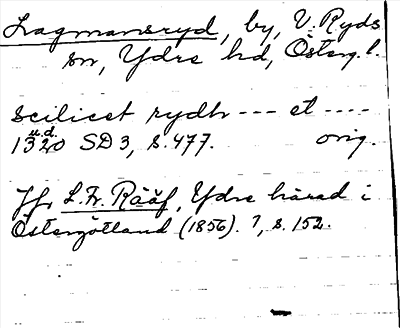 Lagmansryd, by, V. Ryds
sn, Ydre hd, Österg. l.
scilicet rydh --- et ----
u.d.
1320 SD 3, s. 477. orig.
Jfr L. Fr. Rääf, Ydre härad i
Östergötland (1856). 1, s. 152.